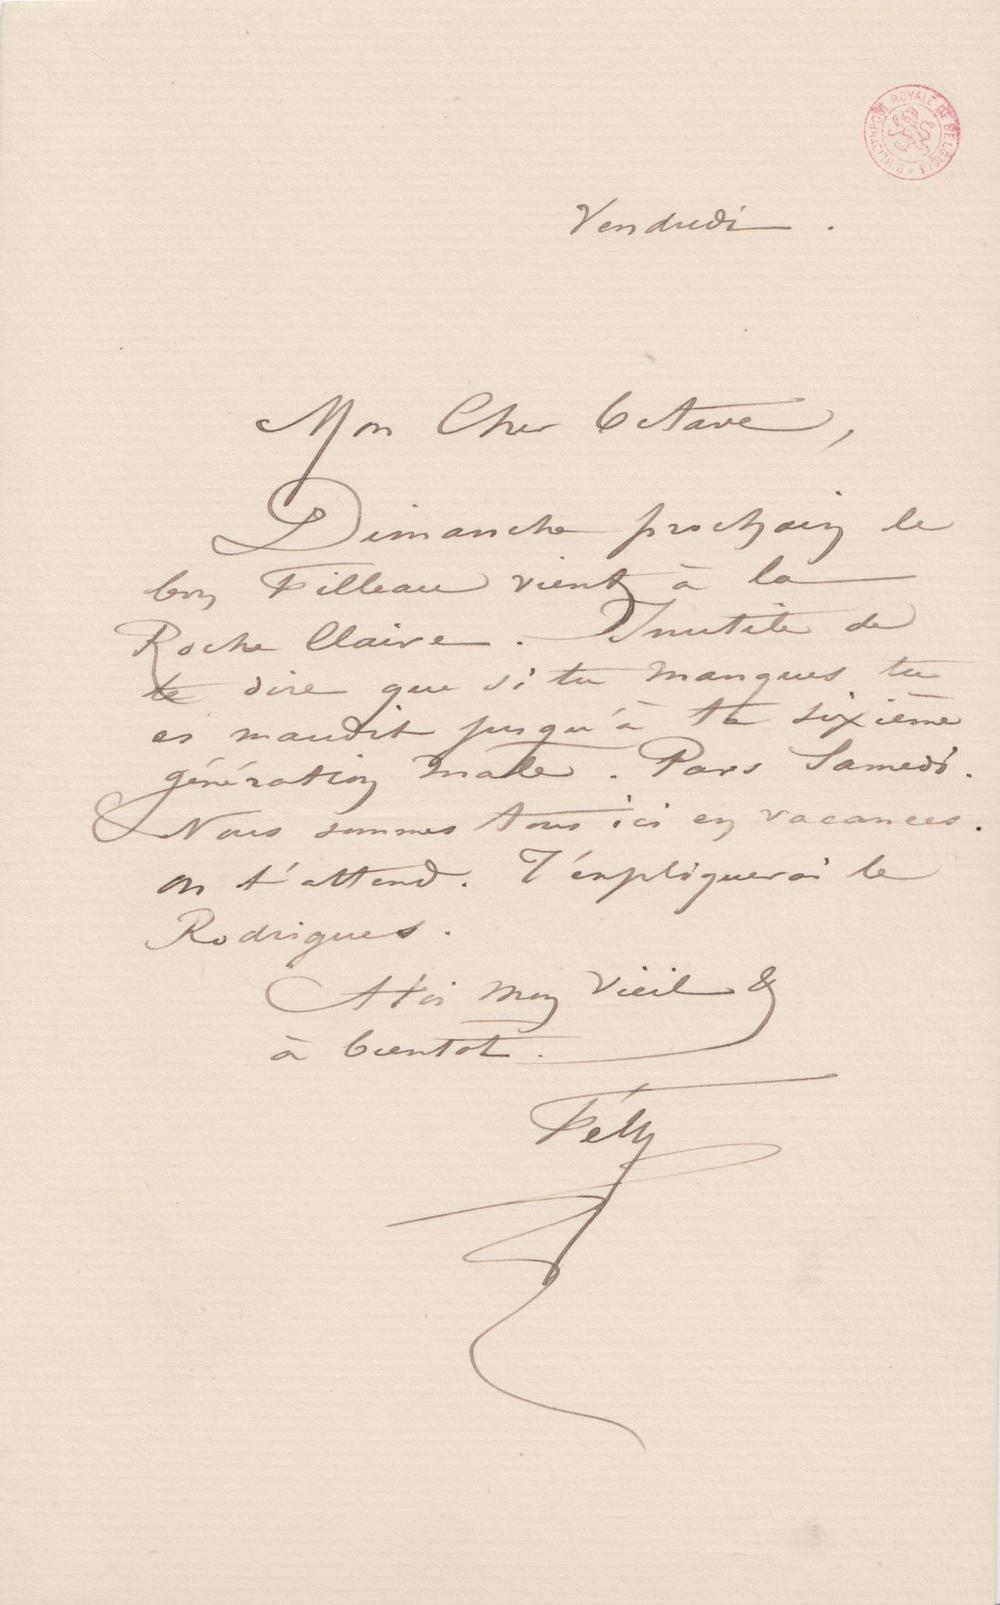 BIBLIOTHEQUE ROYALE DE BELGIQUE
Vendredi.
Mon Cher Octave,
Dimanche prochain le
bon Filleau vient à la
Roche Claire. Inutile de
te dire que si tu manques tu
es maudit jusqu'à ta sixième
génération male. Pars Samedi.
Nous sommes tous ici en vacances.
on t'attend. T'expliquerai le
Rodrigues.
A toi mon vieil &
à bientot.
Fély